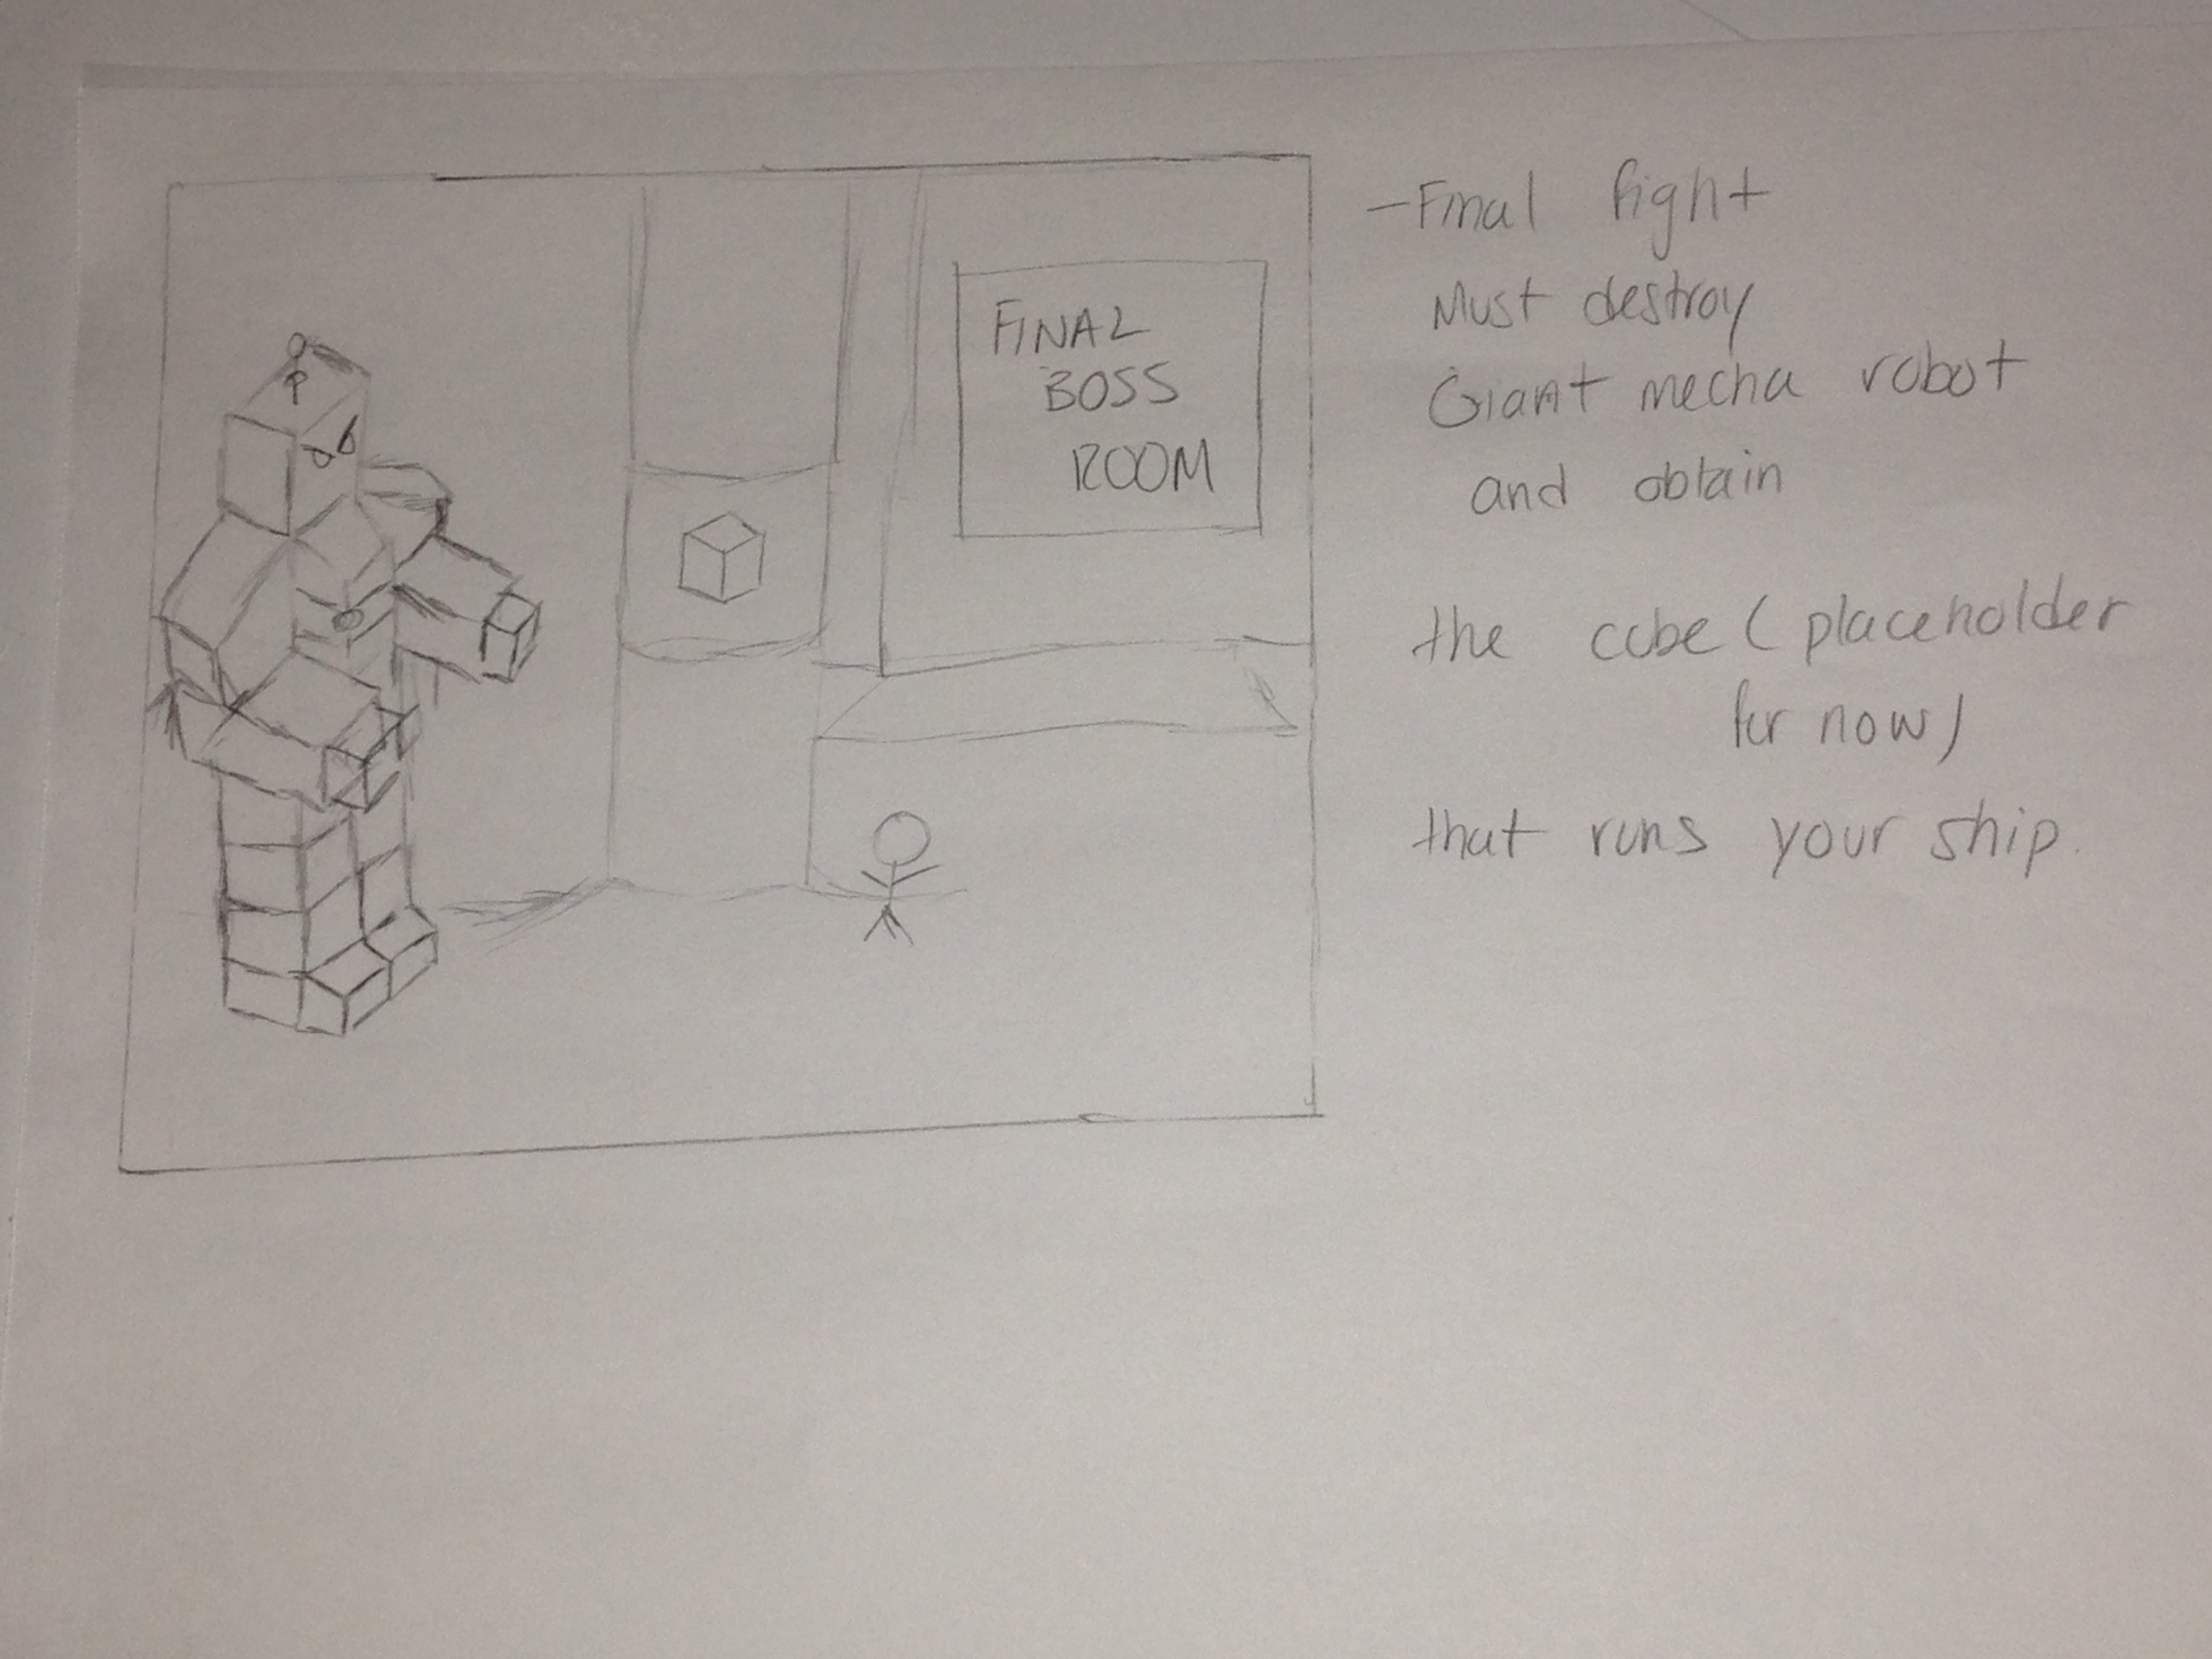 FINAL
BOSS
ROOM
-Final fight
Must destroy
Giant mecha robot
and obtain
the cube (placeholder
for now)
that runs your ship.